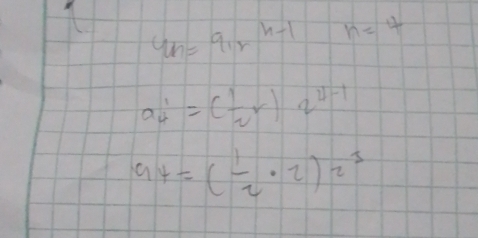 an = a1r^n-1 n = 4
a4 = (1/2r) 2^4-1
a4 = (1/2 · 2) 2^3